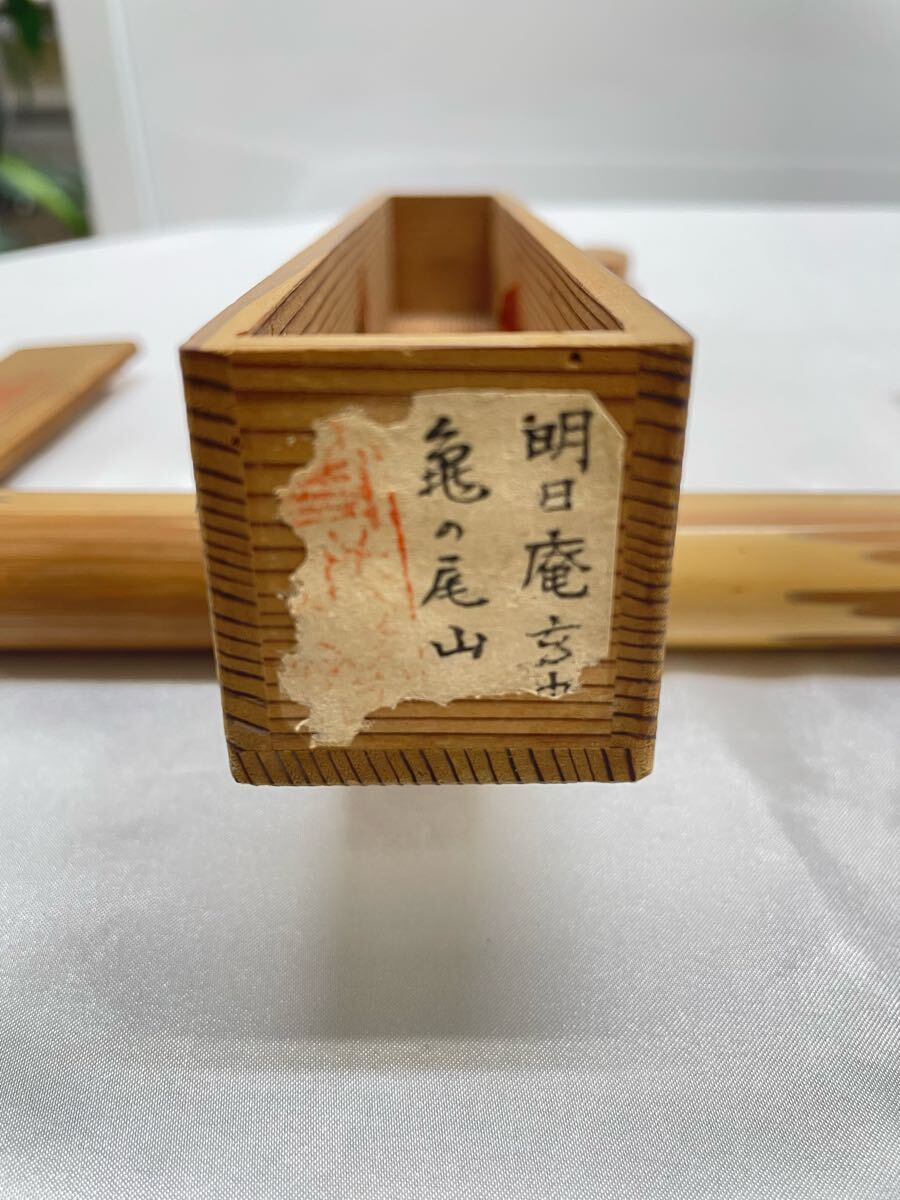 明日庵
亀の尾山